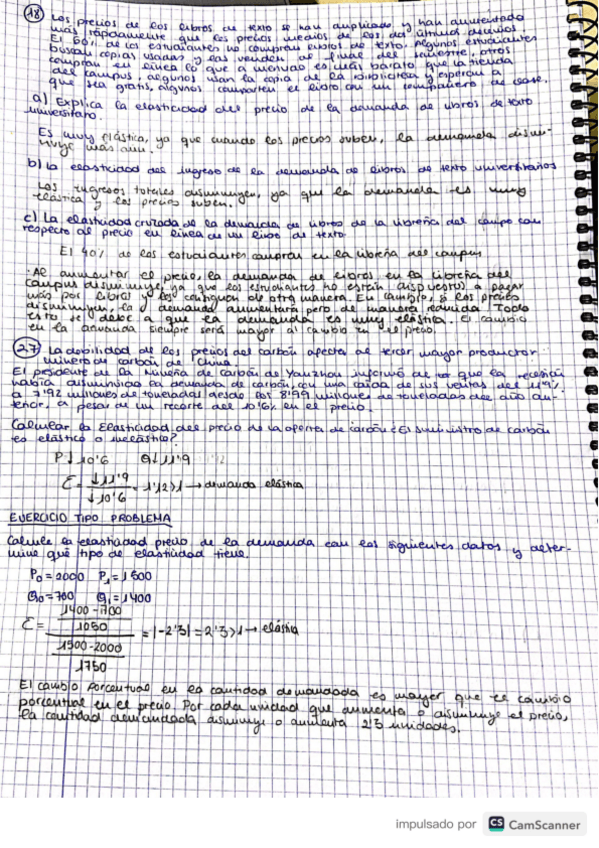 18) Los precios de los libros de texto se han ampliado y han aumentado
más rápidamente que los precios medios de los dos últimos decenios
El 60% de los estudiantes no compran libros de texto. Algunos estudiantes
buscan copias usadas y las venden al final del semestre, otros
compran en línea lo que a menudo es más barato que la tienda
del campus, algunos usan la copia de la biblioteca y esperan a
que sea gratis, algunos comparten el libro con un compañero de clase.
a) Explica la elasticidad del precio de la demanda de libros de texto
universitario.
Es muy elástica, ya que cuando los precios suben, la demanda dismi-
nuye más aún.
b) La elasticidad del ingreso de la demanda de libros de texto universitarios
Los ingresos totales disminuyen, ya que la demanda es muy
elástica y los precios suben.
c) La elasticidad cruzada de la demanda de libros de la librería del campo con
respecto al precio en línea de un libro de texto.
El 40% de los estudiantes compran en la librería del campus
Al aumentar el precio, la demanda de libros en la librería del
campus disminuye, ya que los estudiantes no están dispuestos a pagar
más por libros y los consiguen de otra manera. En cambio, si los precios
disminuyen, la demanda aumentará pero de manera reducida. Todo
esto se debe a que la demanda es muy elástica. El cambio
en la demanda siempre será mayor al cambio en el precio.
27) La debilidad de los precios del carbón afecta al tercer mayor productor
minero de carbón de China.
El presidente de la Minería de Carbón de Yanzhou informó de que la recesión
había disminuido la demanda de carbón, con una caída de sus ventas del 11'9%
a 7'92 millones de toneladas desde los 8'99 millones de toneladas del año an-
terior, a pesar de un recorte del 10'6% en el precio.
Calcular la Elasticidad del precio de la oferta de carbón ¿El suministro de carbón
es elástico o inelástico?
P↓10'6 Q↓11'9
E = ↓11'9 / ↓10'6 = 1'12>1 → demanda elástica
EJERCICIO TIPO PROBLEMA
Calcule la elasticidad precio de la demanda con los siguientes datos y deter-
mine qué tipo de elasticidad tiene.
P₀=2000 P₁=1500
Q₀=700 Q₁=1400
1400-700
E = 1050 = |-2'3| = 2'3>1 → elástica
1500-2000
1750
El cambio porcentual en la cantidad demandada es mayor que el cambio
porcentual en el precio. Por cada unidad que aumenta o disminuye el precio,
la cantidad demandada disminuye o aumenta 2'3 unidades.
impulsado por CS CamScanner